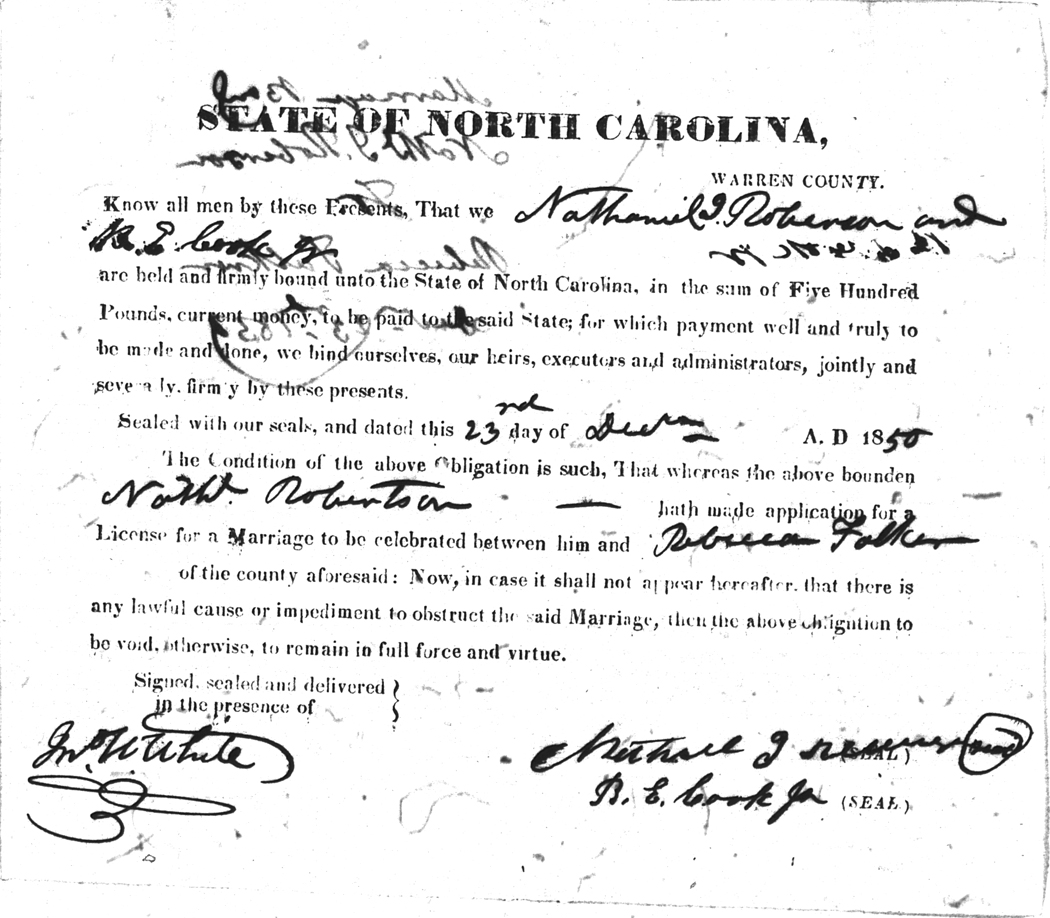 STATE OF NORTH CAROLINA,
WARREN COUNTY.
Know all men by these Presents, That we Nathaniel J. Roberson and
B. E. Cook Jr
are held and firmly bound unto the State of North Carolina, in the sum of Five Hundred
Pounds, current money, to be paid to the said State; for which payment well and truly to
be made and done, we bind ourselves, our heirs, executors and administrators, jointly and
severally, firmly by these presents.
Sealed with our seals, and dated this 23nd day of Decem A. D 1850
The Condition of the above Obligation is such, That whereas the above bounden
Nathl. Robertson — hath made application for a
License for a Marriage to be celebrated between him and Rebecca
of the county aforesaid: Now, in case it shall not appear hereafter, that there is
any lawful cause or impediment to obstruct the said Marriage, then the above obligation to
be void, otherwise, to remain in full force and virtue.
Signed, sealed and delivered
in the presence of
Jno. W. White
J (SEAL)
B. E. Cook Jr (SEAL)